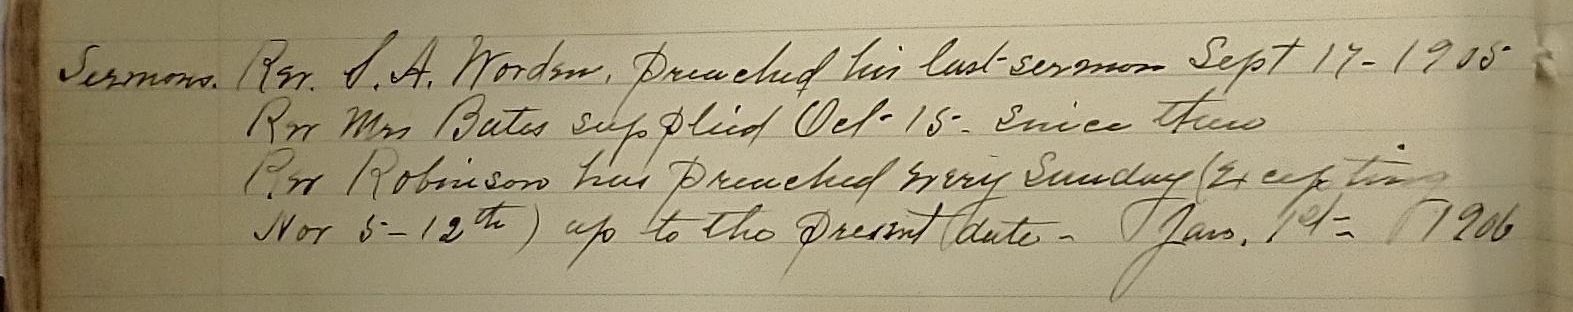 Sermons. Rev. S. A. Worden, preached his last sermon Sept 17-1905
Rev Mrs Bates supplied Oct-15- Since then
Rev Robinson has preached every Sunday (Excepting
Nov 5-12th) up to the present date - Jan. 1st- 1906